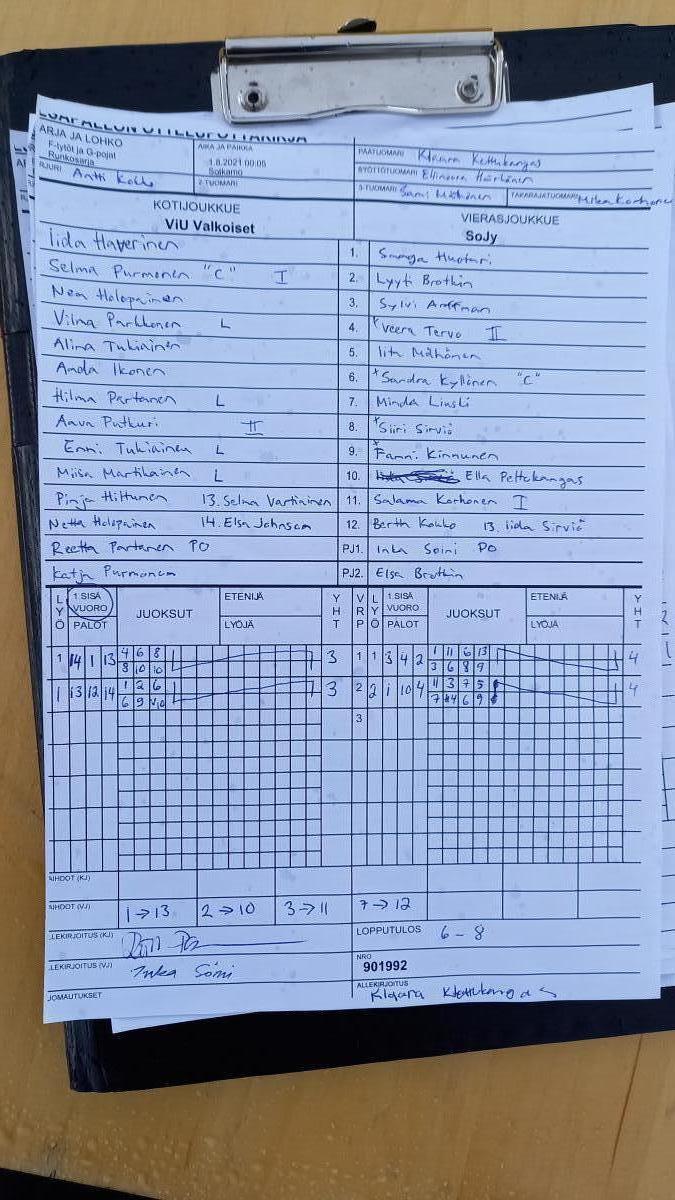 ARJA JA LOHKO
F-tytöt ja G-pojat
Runkosarja
AIKA JA PAIKKA
1.8.2021 00:05
Sotkamo
PÄÄTUOMARI Klaara Kettukangas
SYÖTTÖTUOMARI Ellinoora Härkönen
RJURI Antti Kokko
2-TUOMARI
3-TUOMARI Sami Mähönen
TAKARAJATUOMARI Mika Korhone
KOTIJOUKKUE
VIERASJOUKKUE
ViU Valkoiset
SoJy
Iida Haverinen 1. Huotari
Selma Purmonen "C" I 2. Lyyti Brothin
Nea Holopainen 3. Sylvi
Vilma Parkkonen L 4. Veera Tervo II
Alina Tukiainen 5. Iita Mähönen
Anda Ikonen 6. Sandra Kyllönen "C"
Hilma Partanen L 7. Minda Linski
Aava Putkuri II 8. Siiri Sirviö
Enni Tukiainen L 9. Fanni Kinnunen
Miisa Martikainen L 10. Ella Pettukangas
Pinja Hiltunen 13. Selna Vartiainen 11. Salama Korhonen I
Netta Holopainen 14. Elsa Johnson 12. Bertta Kokko 13. Iida Sirviö
Reetta Partanen PO PJ1. Inka Soini PO
Katja Purmonen PJ2. Elsa Brothin
LYÖ 1.SISÄ VUORO PALOT JUOKSUT ETENIJÄ LYÖJÄ YHT VRP LYÖ 1.SISÄ VUORO PALOT JUOKSUT ETENIJÄ LYÖJÄ YHT
1 14 1 13 4 6 8 3 1 1 3 4 2 1 11 6 13 4
8 10 10 3 6 8 9
1 13 12 14 1 2 6 3 2 2 1 10 4 11 3 7 5 4
6 9 10 7 4 6 9
3
AIHDOT (KJ)
AIHDOT (VJ) 1→13 2→10 3→11 7→12
LEKIRJOITUS (KJ)
LOPPUTULOS 6-8
LEKIRJOITUS (VJ) Inka Soini
NRO
901992
JOMAUTUKSET
ALLEKIRJOITUS
Klaara Kettukangas